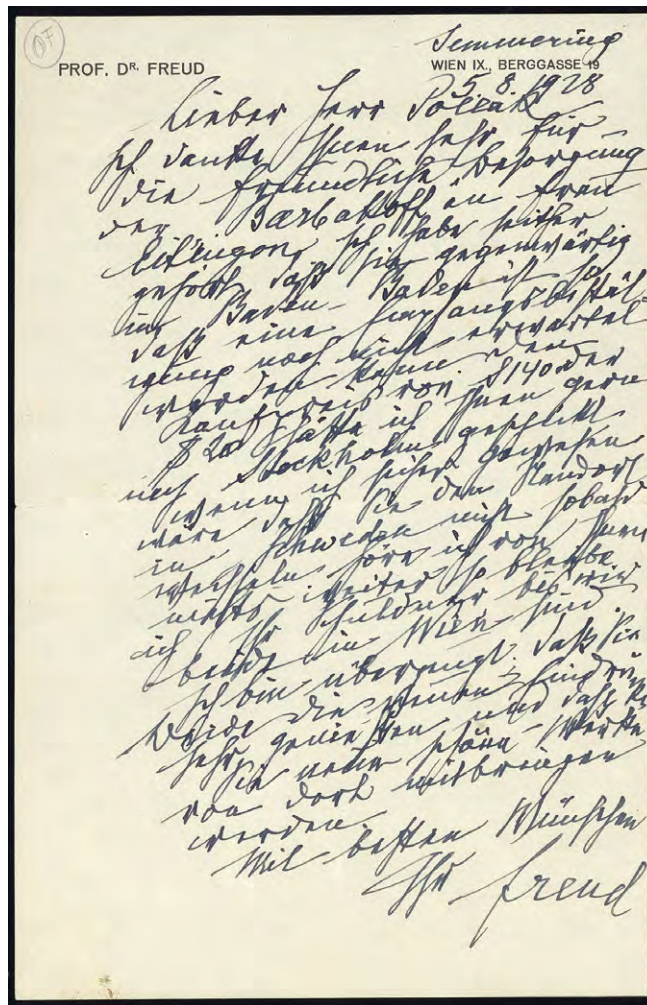 PROF. DR. FREUD
Semmering
WIEN IX., BERGGASSE 19
5.8.1928
Lieber Herr Pollak
Ich danke Ihnen sehr für
die freundliche Besorgung
der an Frau
Eitingon, ich habe seither
gehört, daß sie gegenwärtig
in Baden-Baden ist so
daß eine Empfangsbestäti
gung noch nicht erwartet
werden kann. Den
Kaufpreis von S 140 oder
$ 20 hätte ich Ihnen gern
nach Stockholm geschickt
wenn ich sicher gewesen
wäre daß Sie den Standort
in Schweden nicht sobald
wechseln. Höre ich von Ihnen
nichts weiter so bleibe
ich Ihr Schuldner bis wir
beide in Wien sind.
Ich bin überzeugt, daß Sie
beide die neuen Eindrücke
sehr genießen und daß
Sie neue schöne Werke
von dort mitbringen
werden.
Mit besten Wünschen
Ihr Freud